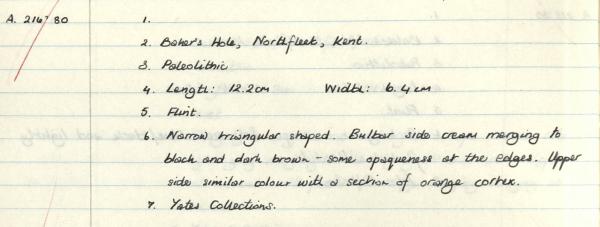 A. 216' 80
1.
2. Baker's Hole, Northfleet, Kent.
3. Paleolithic
4. Length: 12.2cm Width: 6.4cm
5. Flint.
6. Narrow triangular shaped. Bulbar side cream merging to
black and dark brown - some opaqueness at the edges. Upper
side similar colour with a section of orange cortex.
7. Yates Collections.